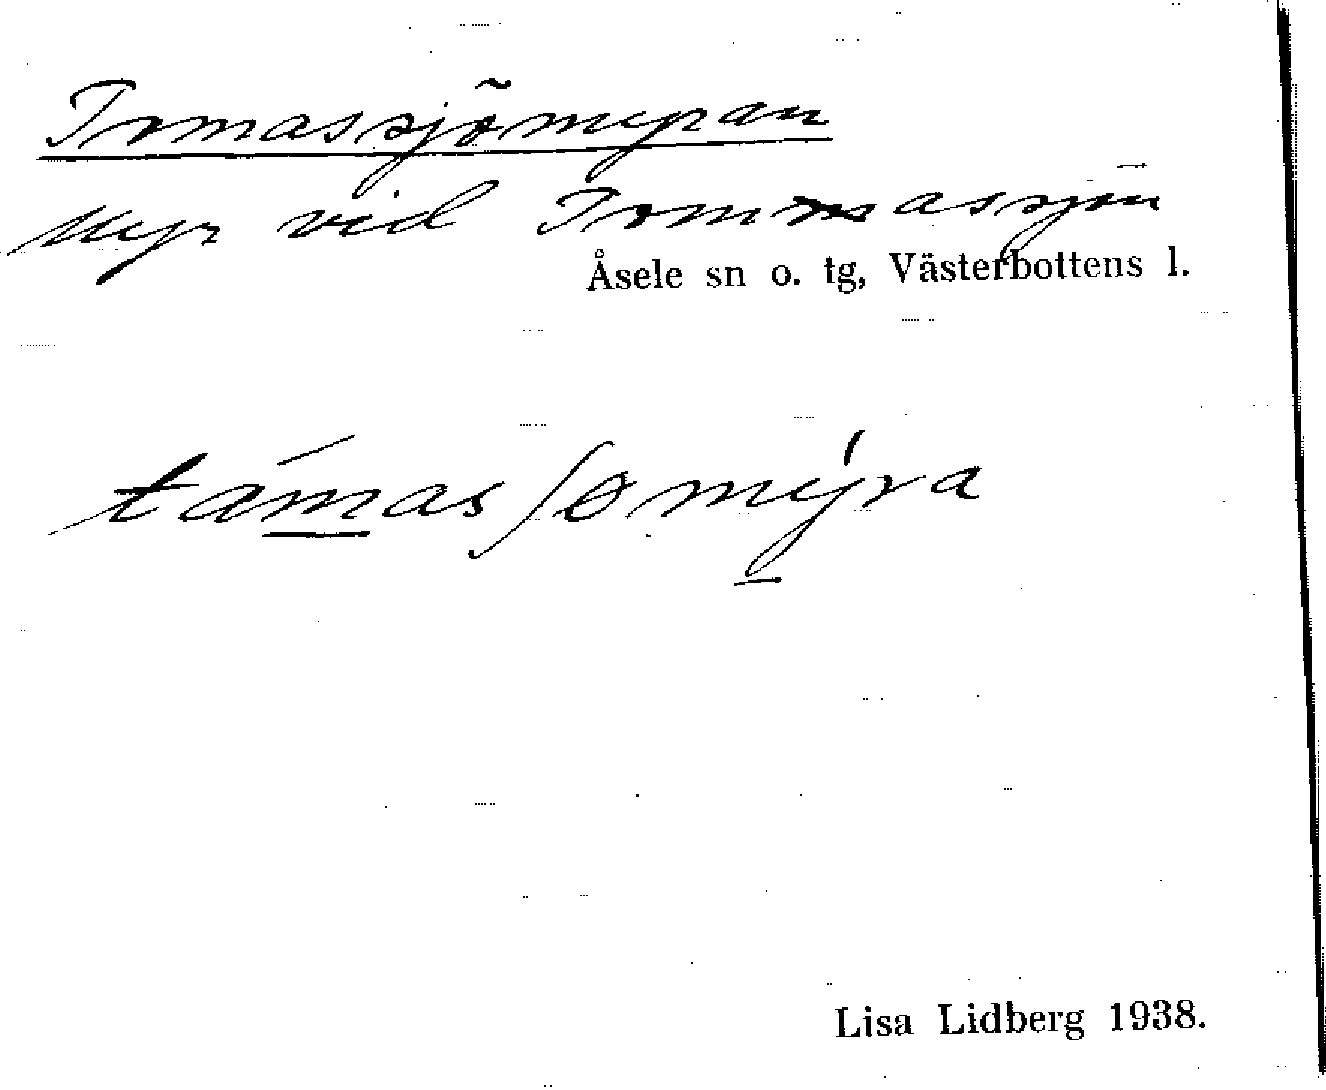 Tomassjömyran
Myr vid Tommassjön
Åsele sn o. tg, Västerbottens l.
támasʃømýra
Lisa Lidberg 1938.